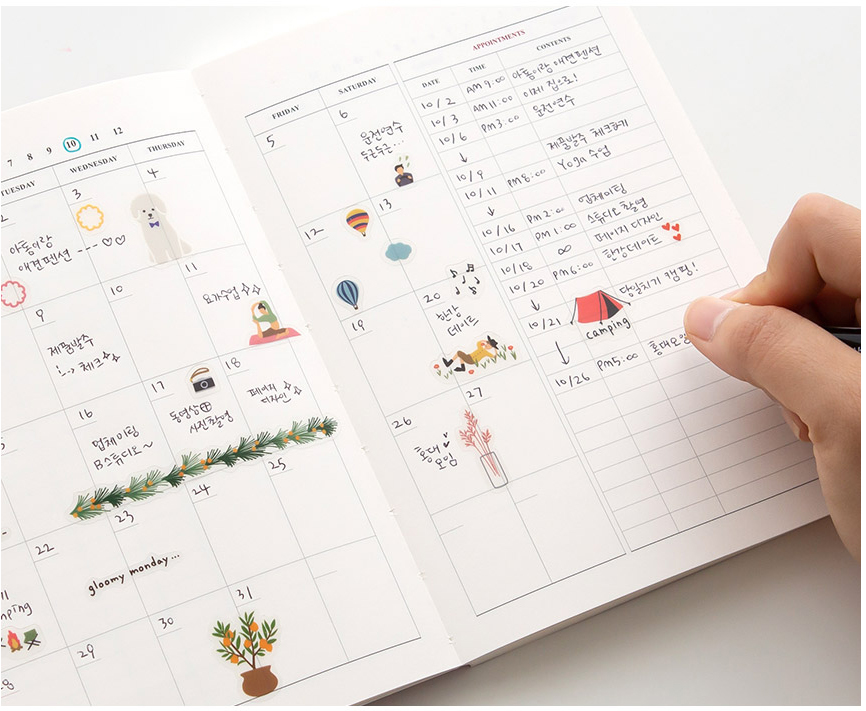 7 8 9 10 11 12
TUESDAY WEDNESDAY THURSDAY
2 3 4
아톰이랑
애견펜션 --- ♡♡
9 10 11
제품발주
체크
요가수업
16 17 18
업체미팅
B스튜디오~
동영상
사진촬영
페이지
디자인
22 23 24 25
gloomy monday...
mping
28 29 30 31
FRIDAY SATURDAY
5 6
운전연수
두근두근...
12 13
19 20
한강
데이트
26 27
홍대
모임
APPOINTMENTS
DATE TIME CONTENTS
10/2 AM 9:00 아톰이랑 애견펜션
10/3 AM 11:00 이제 집으로!
10/6 PM 3:00 운전연수
↓
10/9 제품발주 체크하기
10/11 PM 8:00 Yoga 수업
↓
10/16 PM 2:00 업체미팅
10/17 PM 1:00 스튜디오 촬영
10/18 ∞ 페이지 디자인
10/20 PM 6:00 한강데이트
↓
10/21 당일치기 캠핑!
camping
↓
10/26 PM 5:00 홍대모임